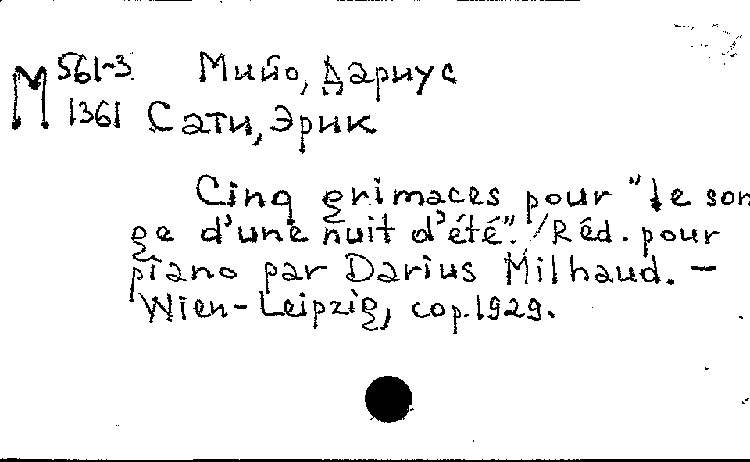 М 561-3 Мийо, Дариус
1361 Сати, Эрик
Cinq grimaces pour "le son
ge d'une nuit d'été". /Réd. pour
piano par Darius Milhaud. –
Wien-Leipzig, cop. 1929.